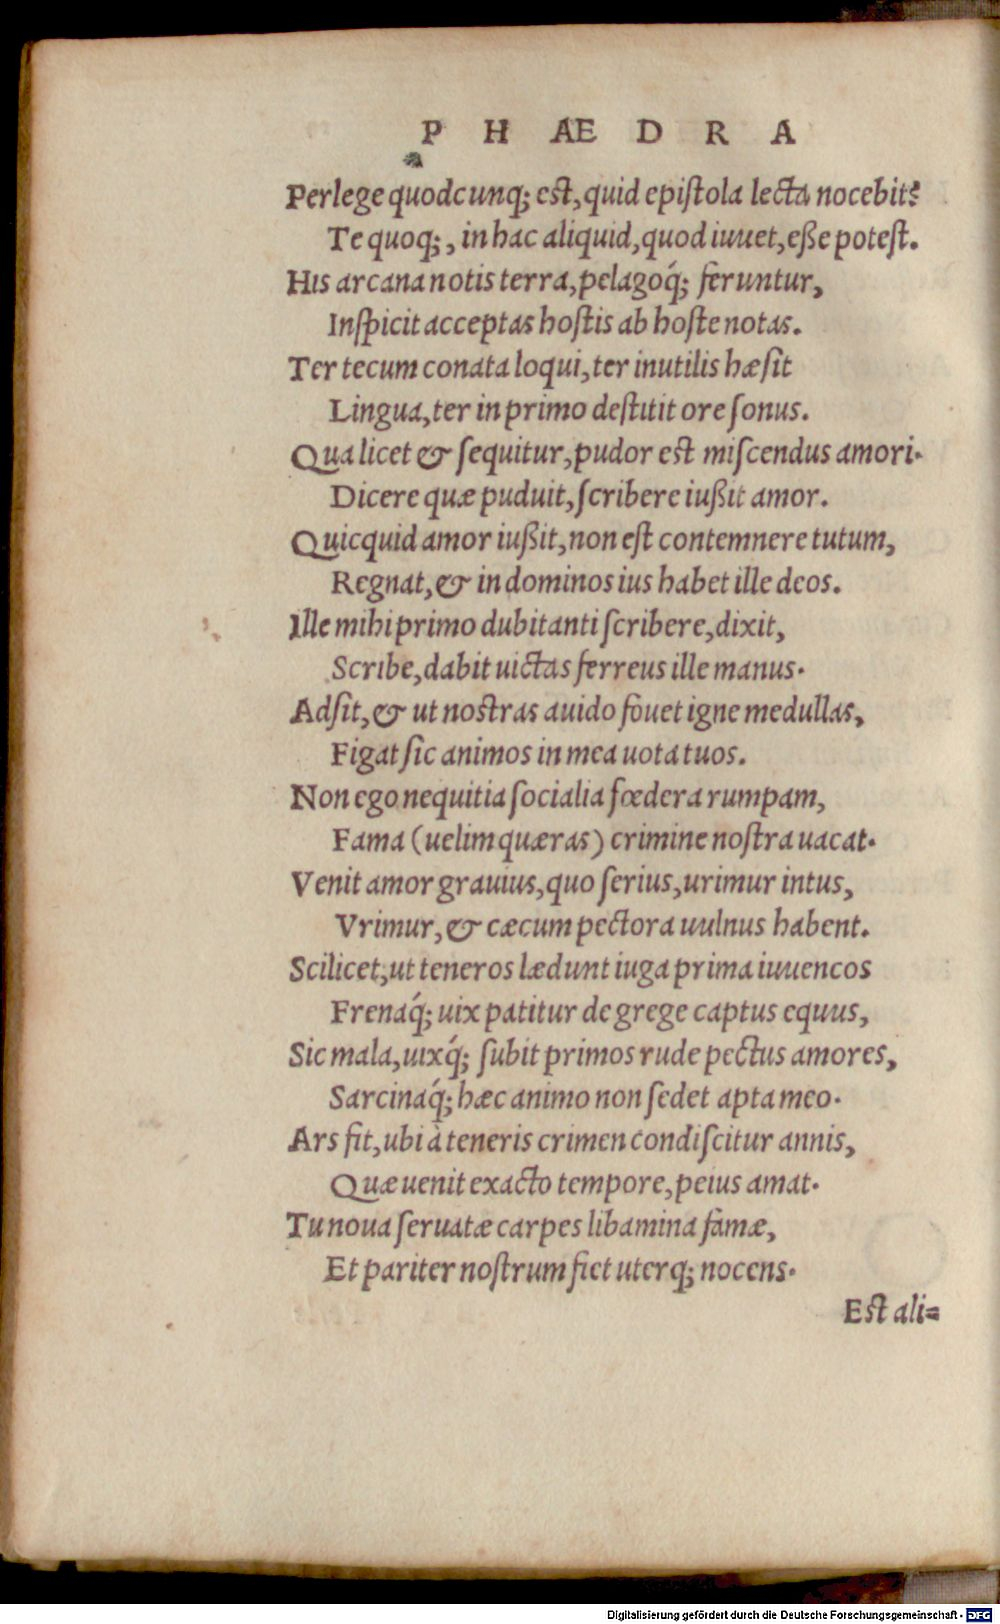 P H AE D R A
Perlege quodcunq; est, quid epiſtola lecta nocebit?
Te quoq;, in hac aliquid, quod iuuet, eße poteſt.
His arcana notis terra, pelagoq́; feruntur,
Inſpicit acceptas hoſtis ab hoſte notas.
Ter tecum conata loqui, ter inutilis hæſit
Lingua, ter in primo deſtitit ore ſonus.
Qua licet & ſequitur, pudor est miſcendus amori.
Dicere quæ puduit, ſcribere iußit amor.
Quicquid amor iußit, non eſt contemnere tutum,
Regnat, & in dominos ius habet ille deos.
Ille mihi primo dubitanti ſcribere, dixit,
Scribe, dabit uictas ferreus ille manus.
Adſit, & ut nostras auido fouet igne medullas,
Figat ſic animos in mea uota tuos.
Non ego nequitia ſocialia fœdera rumpam,
Fama (uelim quæras) crimine noſtra uacat.
Venit amor grauius, quo ſerius, urimur intus,
Vrimur, & cæcum pectora uulnus habent.
Scilicet, ut teneros lædunt iuga prima iuuencos
Frenaq́; uix patitur de grege captus equus,
Sic mala, uixq́; ſubit primos rude pectus amores,
Sarcinaq́; hæc animo non ſedet apta meo.
Ars fit, ubi à teneris crimen condiſcitur annis,
Quæ uenit exacto tempore, peius amat.
Tu noua ſeruatæ carpes libamina famæ,
Et pariter noſtrum fiet uterq; nocens.
Est ali=
Digitalisierung gefördert durch die Deutsche Forschungsgemeinschaft - DFG